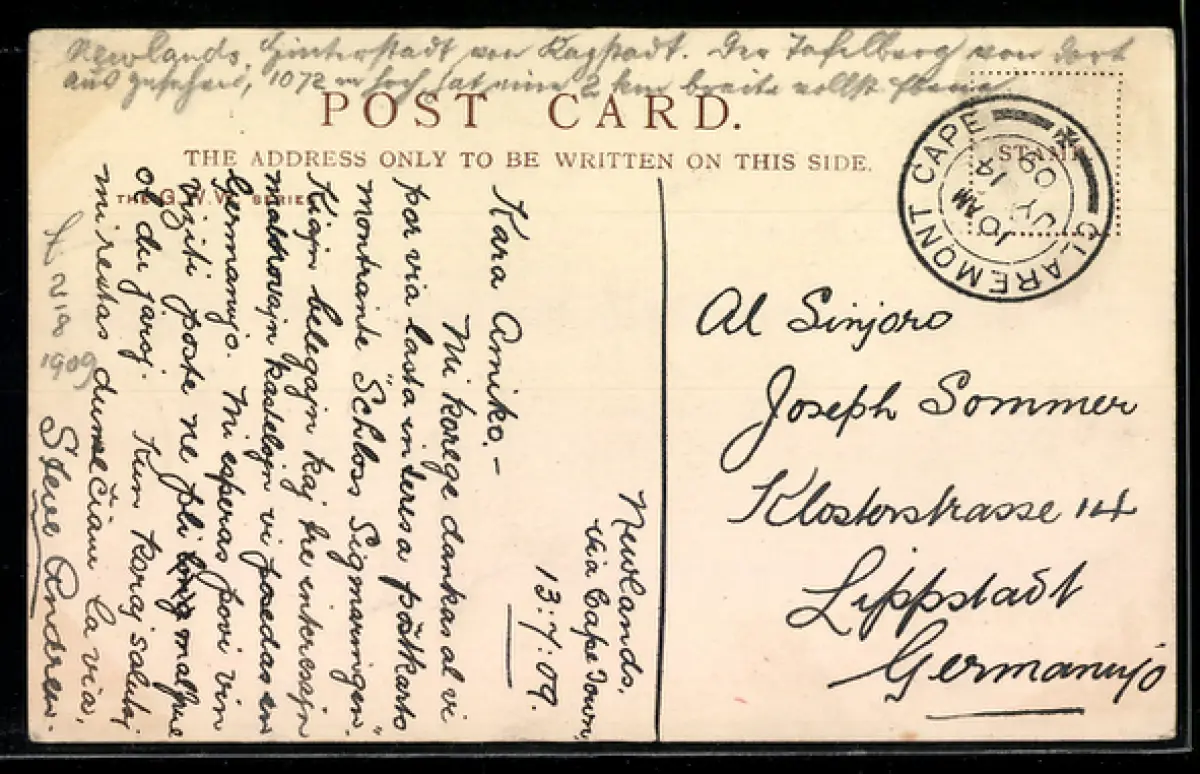 Newlands, Hinterstadt von Kapstadt. Der Tafelberg von dort
aus gesehen, 1072 m hoch, hat eine 2 km breite vollst. Ebene.
POST CARD.
THE ADDRESS ONLY TO BE WRITTEN ON THIS SIDE.
THE G.W.W. SERIES
STAMP
CLAREMONT CAPE
10 AM
JY 14
09
Newlands,
via Cape Town,
13:7:09.
Kara Amiko,—
Mi korege dankas al vi
por via lasta interesa pŏstkarto
montrante "Schloss Sigmaringen."
Kiajn belegajn kaj tre interesajn
malnovajn kastelojn vi posedas en
Germanujo. Mi esperas povi vin
viziti poste ne pli longmalpue
ol du jaroj. Kun koraj salutoj
mi restas dume Ĉiam la via,
Steve Andrew.
VII
1909
Al Sinjoro
Joseph Sommer
Klosterstrasse 14
Lippstadt
Germanujo